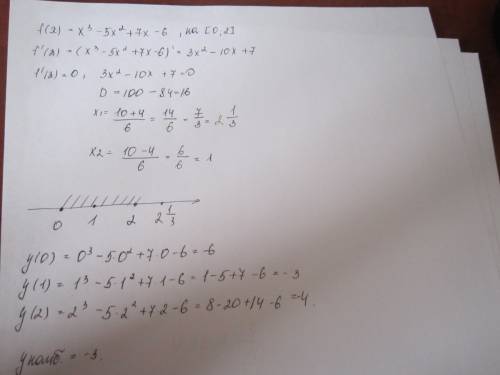 f(x) = x³ - 5x² + 7x - 6, на [0,2]
f'(x) = (x³ - 5x² + 7x - 6)' = 3x² - 10x + 7
f'(x) = 0, 3x² - 10x + 7 = 0
D = 100 - 84 = 16
x₁ = (10+4)/6 = 14/6 = 7/3 = 2 1/3
x₂ = (10-4)/6 = 6/6 = 1
0 1 2 2 1/3
y(0) = 0³ - 5·0² + 7·0 - 6 = -6
y(1) = 1³ - 5·1² + 7·1 - 6 = 1 - 5 + 7 - 6 = -3
y(2) = 2³ - 5·2² + 7·2 - 6 = 8 - 20 + 14 - 6 = -4.
y наиб. = -3.